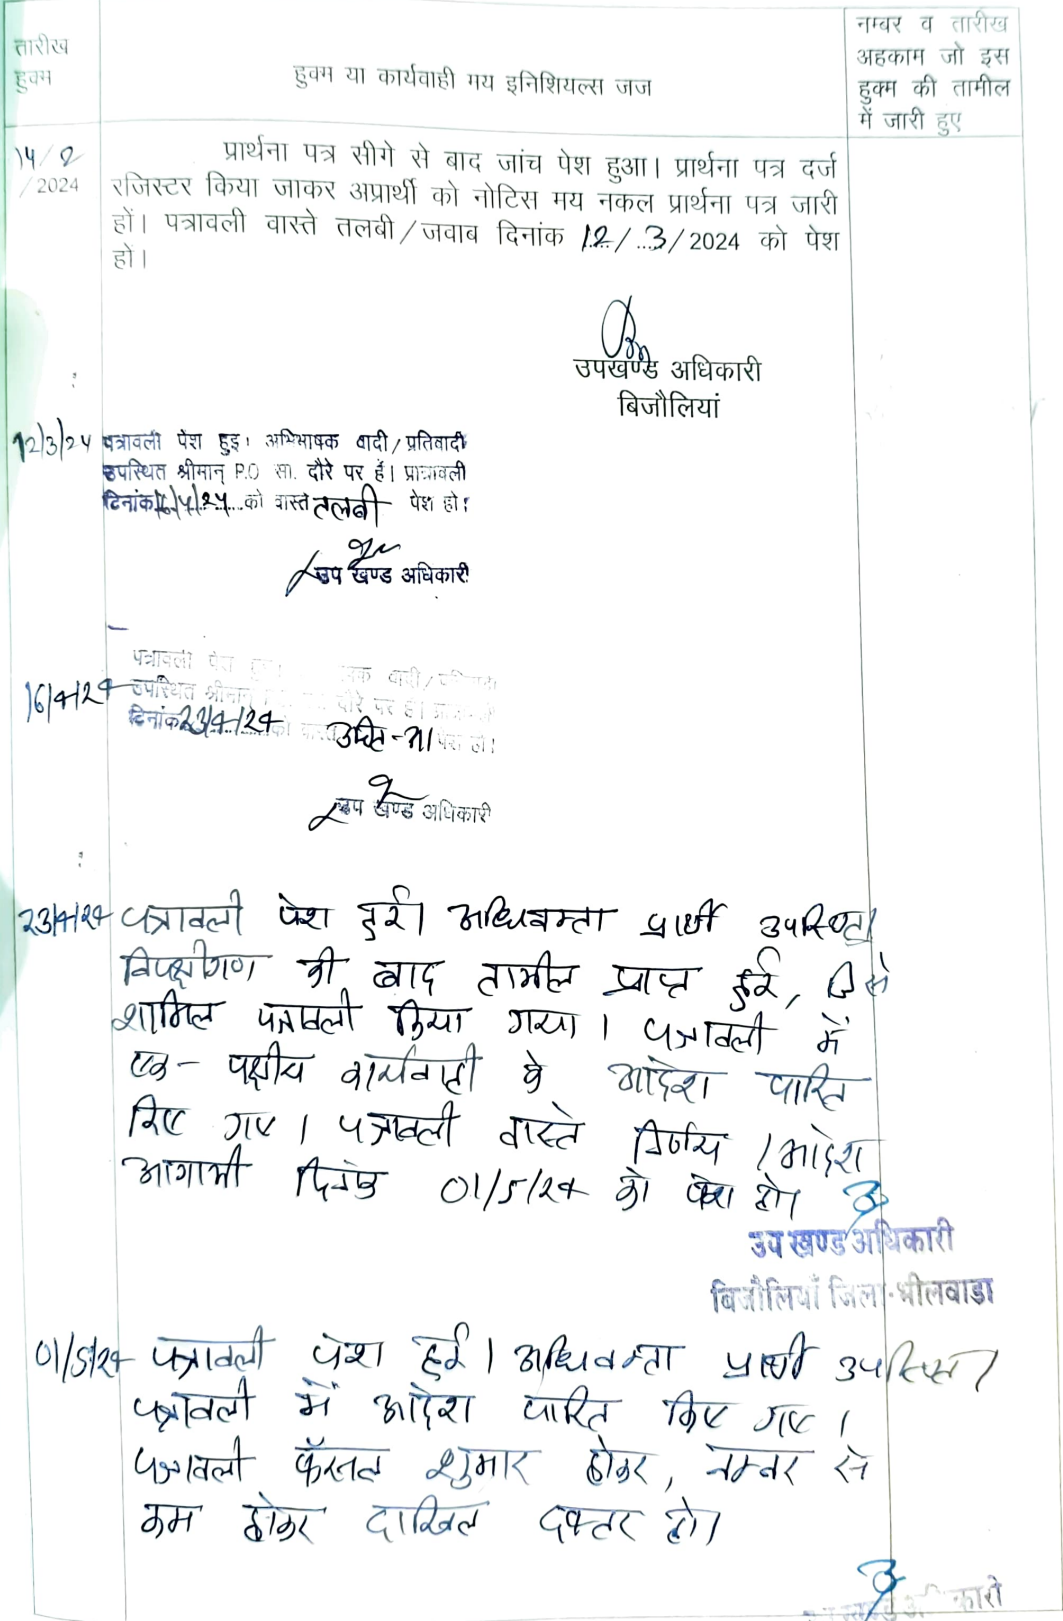 तारीख
हुक्म
हुक्म या कार्यवाही मय इनिशियल्स जज
नम्बर व तारीख
अहकाम जो इस
हुक्म की तामील
में जारी हुए
14/2
/2024
प्रार्थना पत्र सीगे से बाद जांच पेश हुआ। प्रार्थना पत्र दर्ज
रजिस्टर किया जाकर अप्रार्थी को नोटिस मय नकल प्रार्थना पत्र जारी
हों। पत्रावली वास्ते तलबी/जवाब दिनांक 12/3/2024 को पेश
हों।
उपखण्ड अधिकारी
बिजौलियां
12/3/24 पत्रावली पेश हुइ। अभिभाषक वादी/प्रतिवादी
उपस्थित श्रीमान् P.O सा. दौरे पर हैं। प्रात्रावली
दिनांक 16/4/24 को वास्ते तलबी पेश हो।
उप खण्ड अधिकारी
पत्रावली पेश वादी/
16/4/24 उपस्थित श्रीमान दौरे पर हैं।
दिनांक 23/4/24 को पेश हो।
उप खण्ड अधिकारी
23/4/24 पत्रावली पेश हुई। अधिवक्ता प्रार्थी उपस्थित।
विपक्षीगण की बाद तामील प्राप्त हुई, जिसे
शामिल पत्रावली किया गया। पत्रावली में
एक-पक्षीय कार्यवाही के आदेश पारित
किए गए। पत्रावली वास्ते निर्णय/आदेश
आगामी दिनांक 01/5/24 को पेश हो।
उप खण्ड अधिकारी
बिजौलियाँ जिला-भीलवाडा
01/5/24 पत्रावली पेश हुई। अधिवक्ता प्रार्थी उपस्थित।
पत्रावली में आदेश पारित किए गए।
पत्रावली फैसल शुमार होकर, नम्बर से
कम होकर दाखिल दफ्तर हो।